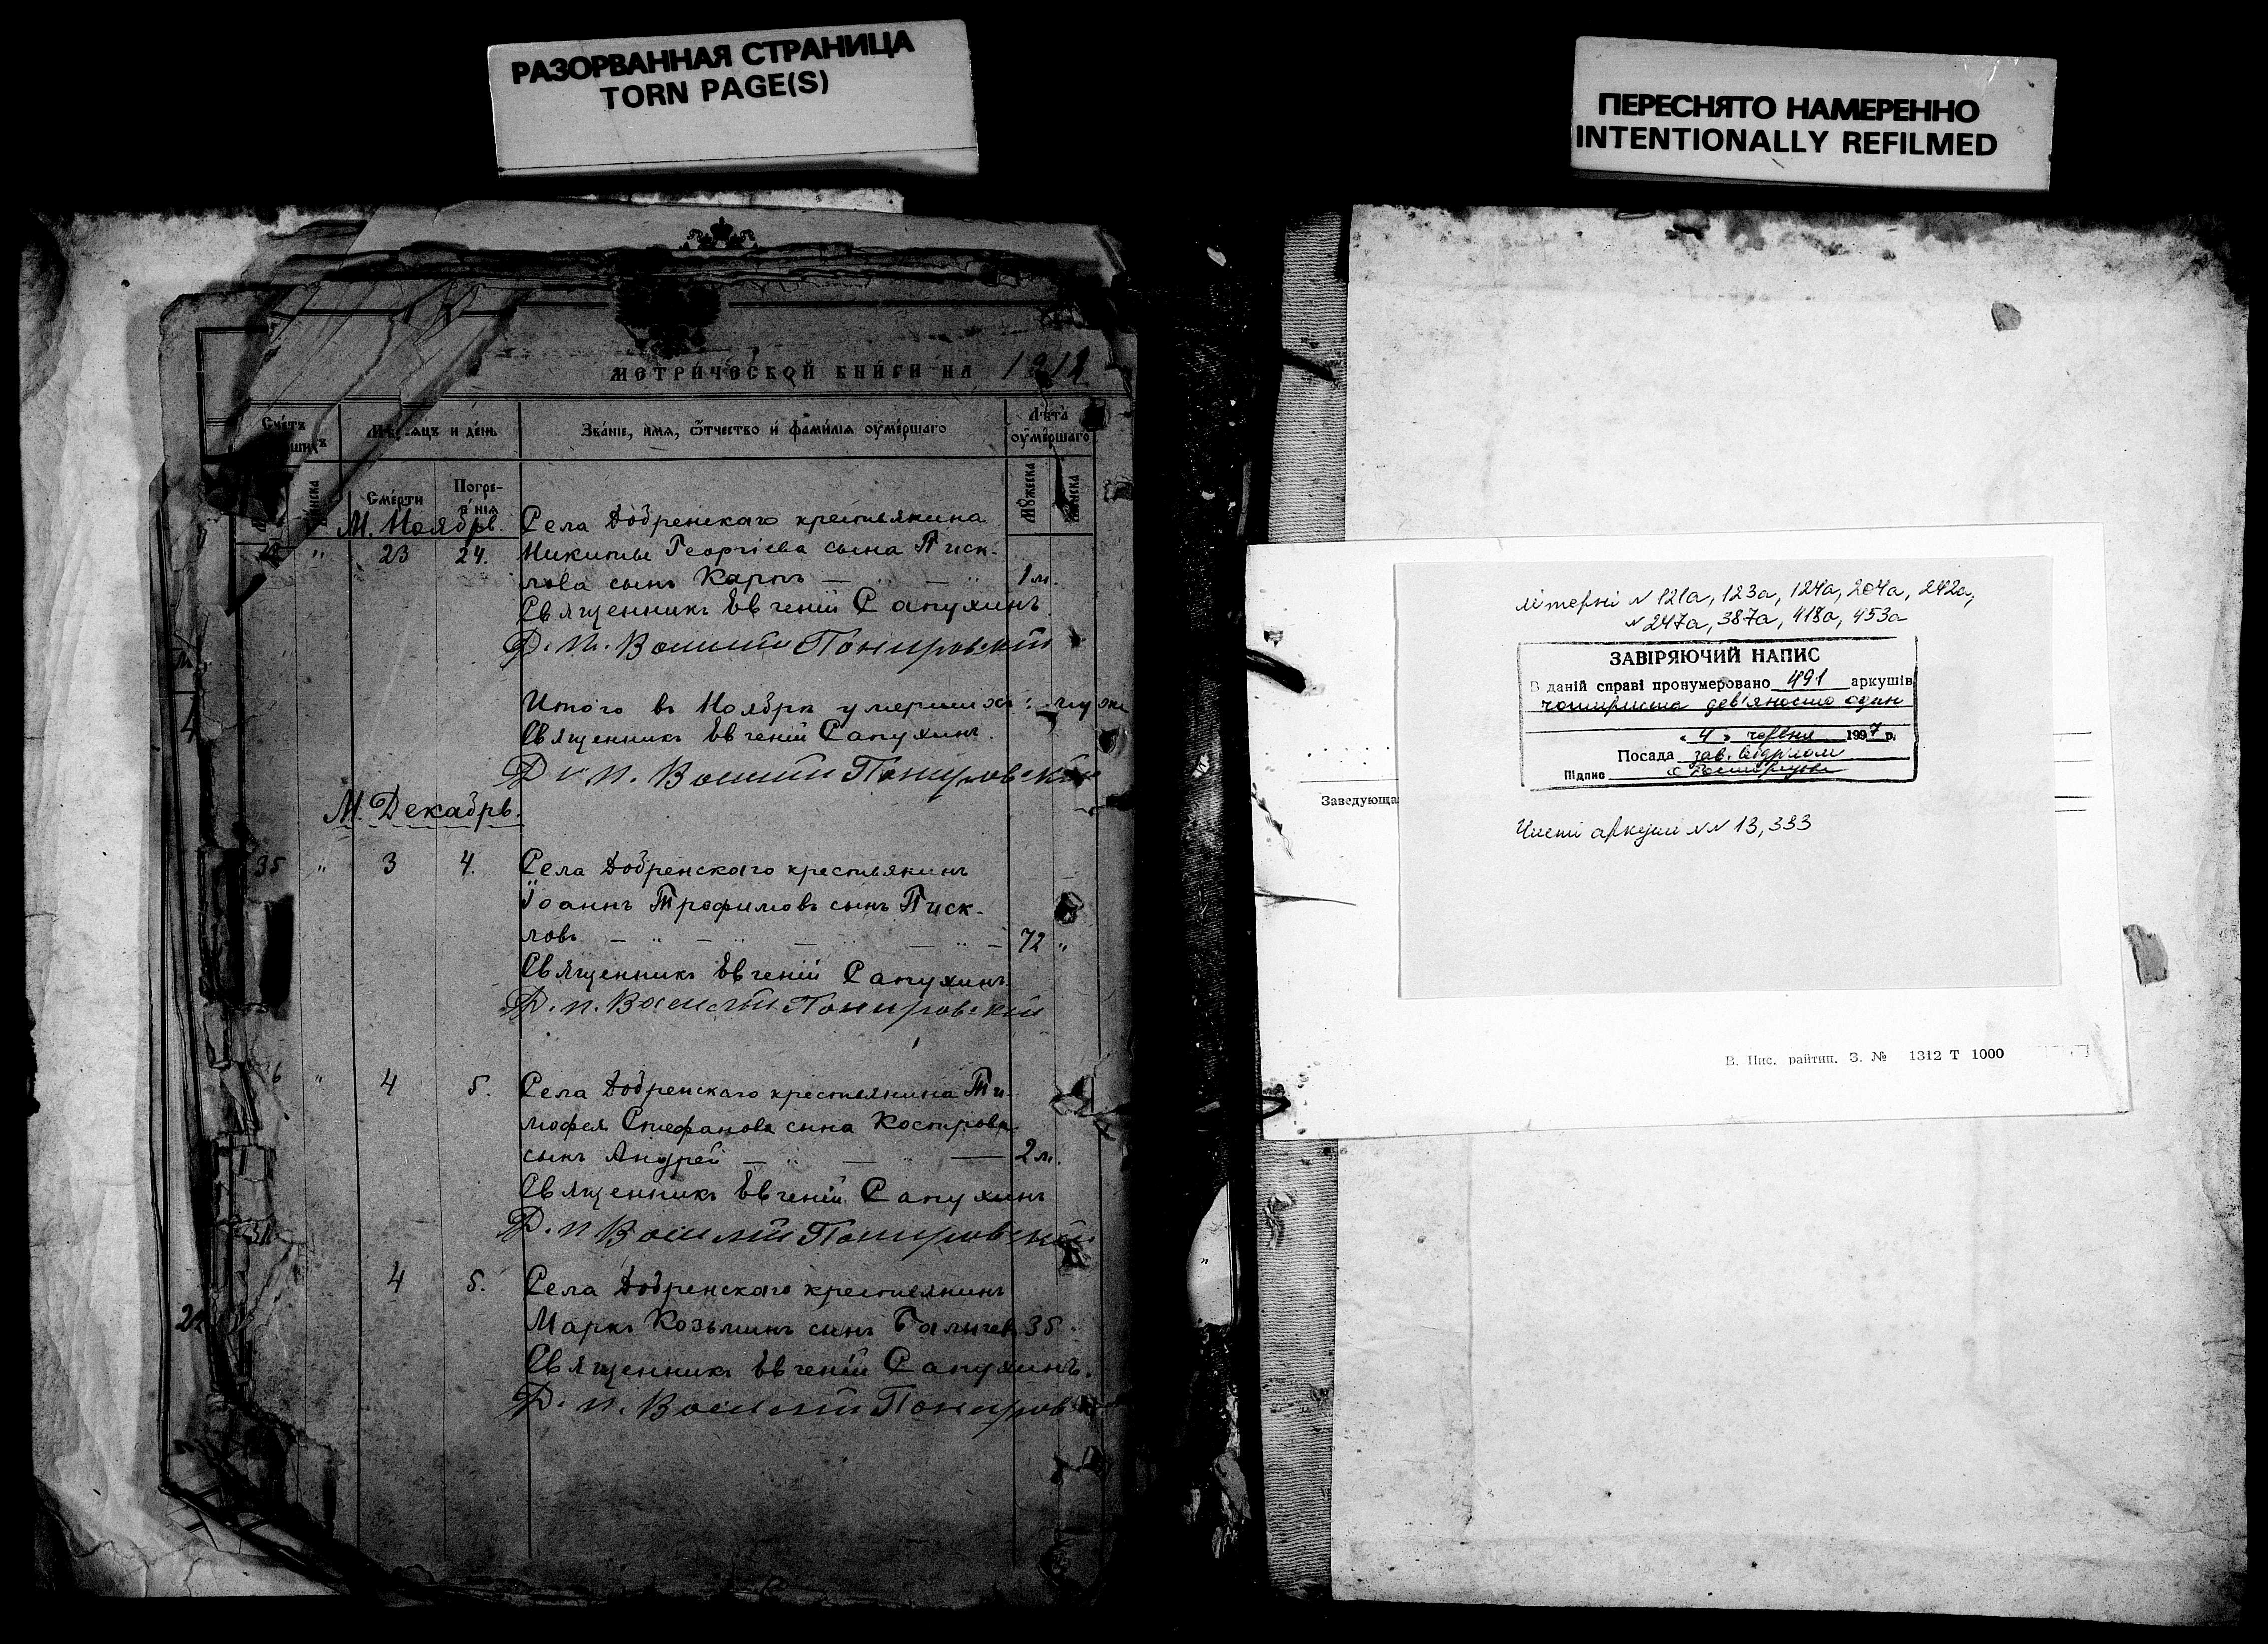 РАЗОРВАННАЯ СТРАНИЦА
TORN PAGE(S)
ПЕРЕСНЯТО НАМЕРЕННО
INTENTIONALLY REFILMED
МЕТРИЧЕСКОЙ КНИГИ НА 1912
Счетъ
Мѣсяцъ и день
Званіе, имя, ѿтчество и фамилія оумершаго
Лѣта оумершаго
Смерти
Погре-
Мужеска
М. Ноябрь.
Села Добренскаго крестьянина
" 23 24. Никиты Георгіева сына Писк-
лова сынъ Карпъ — " — " 1 м.
Священникъ Евгеній Сапухинъ
Д. п. Василій Понировскій
Итого въ Ноябрѣ умершихъ:
Священникъ Евгеній Сапухинъ.
Д. п. Василій Понировскій
М. Декабрь.
35 " 3 4. Села Добренскаго крестьянинъ
Іоаннъ Трофимовъ сынъ Писк-
ловъ — " — " — " — " — 72 "
Священникъ Евгеній Сапухинъ
Д. п. Василій Понировскій
6 " 4 5. Села Добренскаго крестьянина Ти-
мофея Стефанова сына Кострова
сынъ Андрей — " — " — 2 м.
Священникъ Евгеній Сапухинъ
Д. п Василій Понировскій
4 5. Села Добренскаго крестьянинъ
Маркъ Козьминъ сынъ 35
Священникъ Евгеній Сапухинъ.
Д. п. Василій Пониров
літерні N 121а, 123а, 124а, 204а, 242а,
N 247а, 387а, 418а, 453а
ЗАВІРЯЮЧИЙ НАПИС
В даній справі пронумеровано 491 аркушів
чотириста дев'яносто один
«4» червня 1997 р.
Посада зав. відділом
Підпис
Чисті аркуші NN 13, 333
Заведующа
В. Пис. райтип. З. № 1312 Т 1000